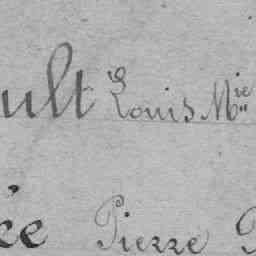 ult Louis Mie
ée Pierre